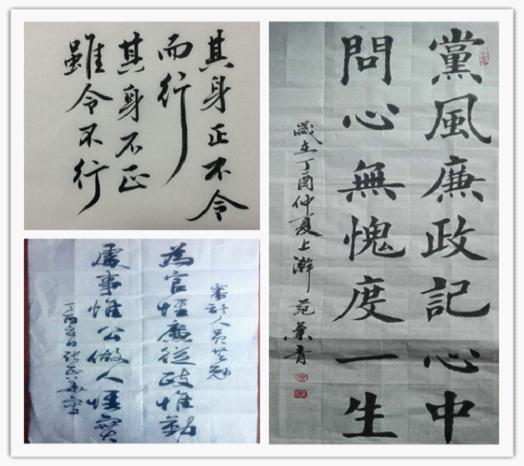 其身正不令
而行
其身不正
雖令不行
審計人員共勉
為官惟廉從政惟勤
處事惟公做人惟實
丁酉
黨風廉政記心中
問心無愧度一生
歲在丁酉仲夏上澣